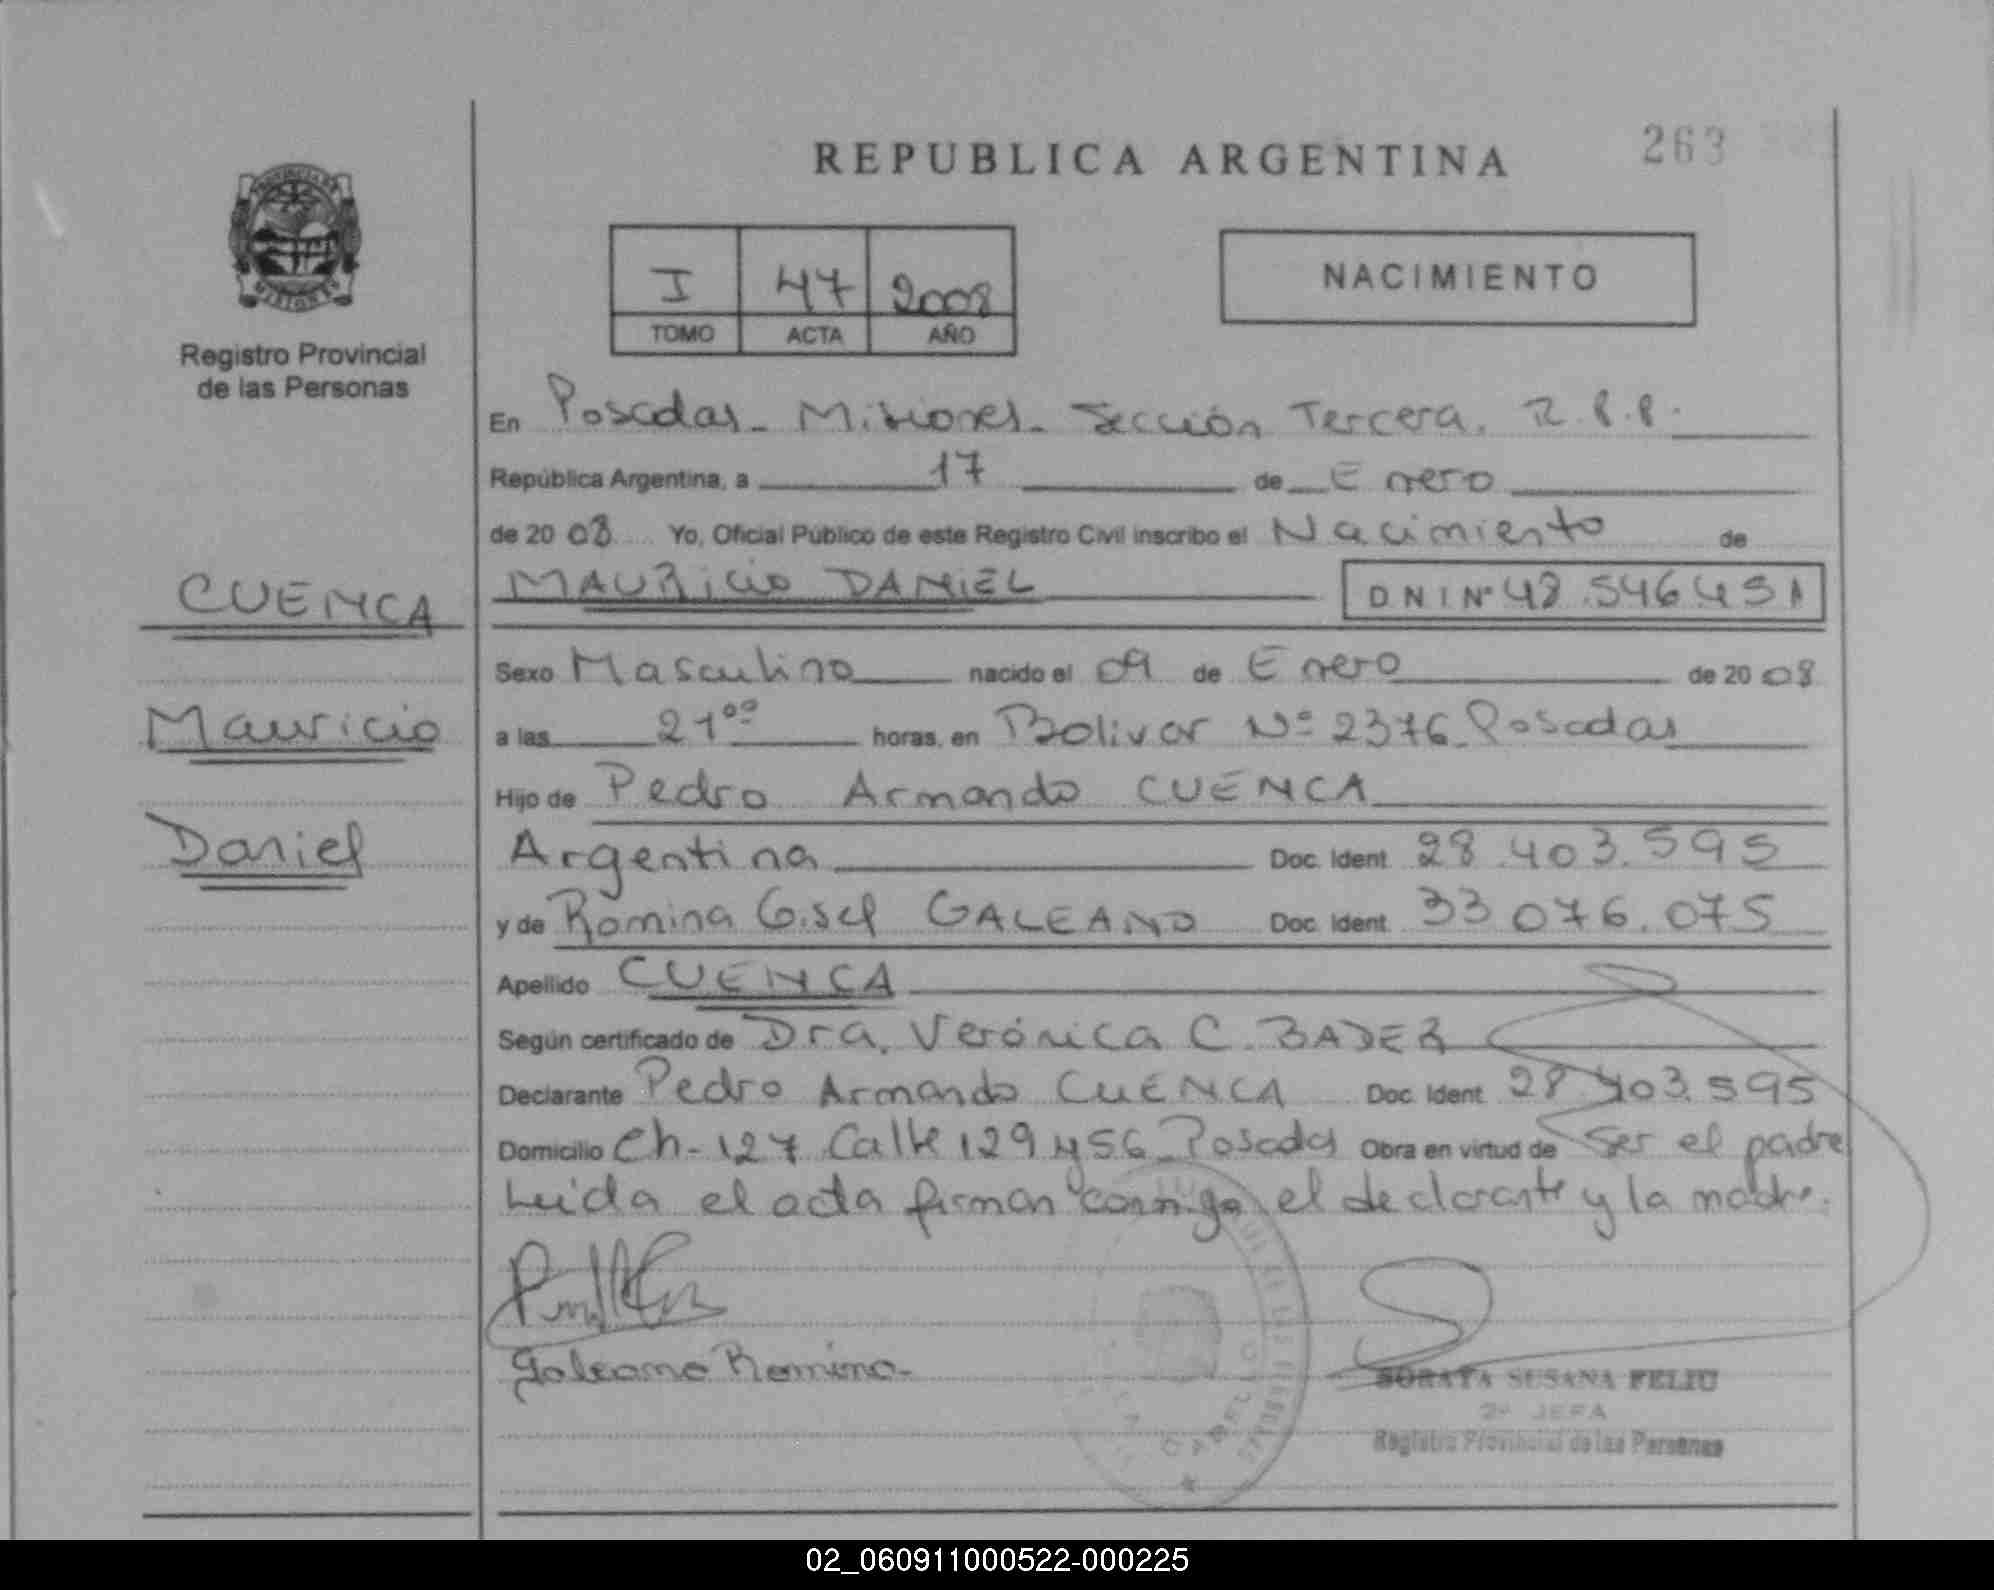 REPUBLICA ARGENTINA
263
PROVINCIA DE
MISIONES
Registro Provincial
de las Personas
I 47 2008
TOMO ACTA AÑO
NACIMIENTO
En Posadas - Misiones - Sección Tercera. R.P.P.
República Argentina, a 17 de Enero
de 2008 Yo, Oficial Público de este Registro Civil inscribo el Nacimiento de
CUENCA
MAURICIO DANIEL DNI Nº 48.546.451
Sexo Masculino nacido el 09 de Enero de 2008
Mauricio
a las 21ºº horas, en Bolivar Nº 2376 - Posadas
Hijo de Pedro Armando CUENCA
Daniel
Argentina Doc. Ident. 28.403.595
y de Romina Gisel GALEANO Doc. Ident. 33.076.075
Apellido CUENCA
Según certificado de Dra. Verónica C. BADER
Declarante Pedro Armando CUENCA Doc. Ident. 28.403.595
Domicilio Ch-127 Calle 129 y 56 - Posadas Obra en virtud de Ser el padre
Leída el acta firman conmigo el declarante y la madre.
Galeano Romina-
SUSANA FELIU
2ª JEFA
Registro Provincial de las Personas
02_060911000522-000225